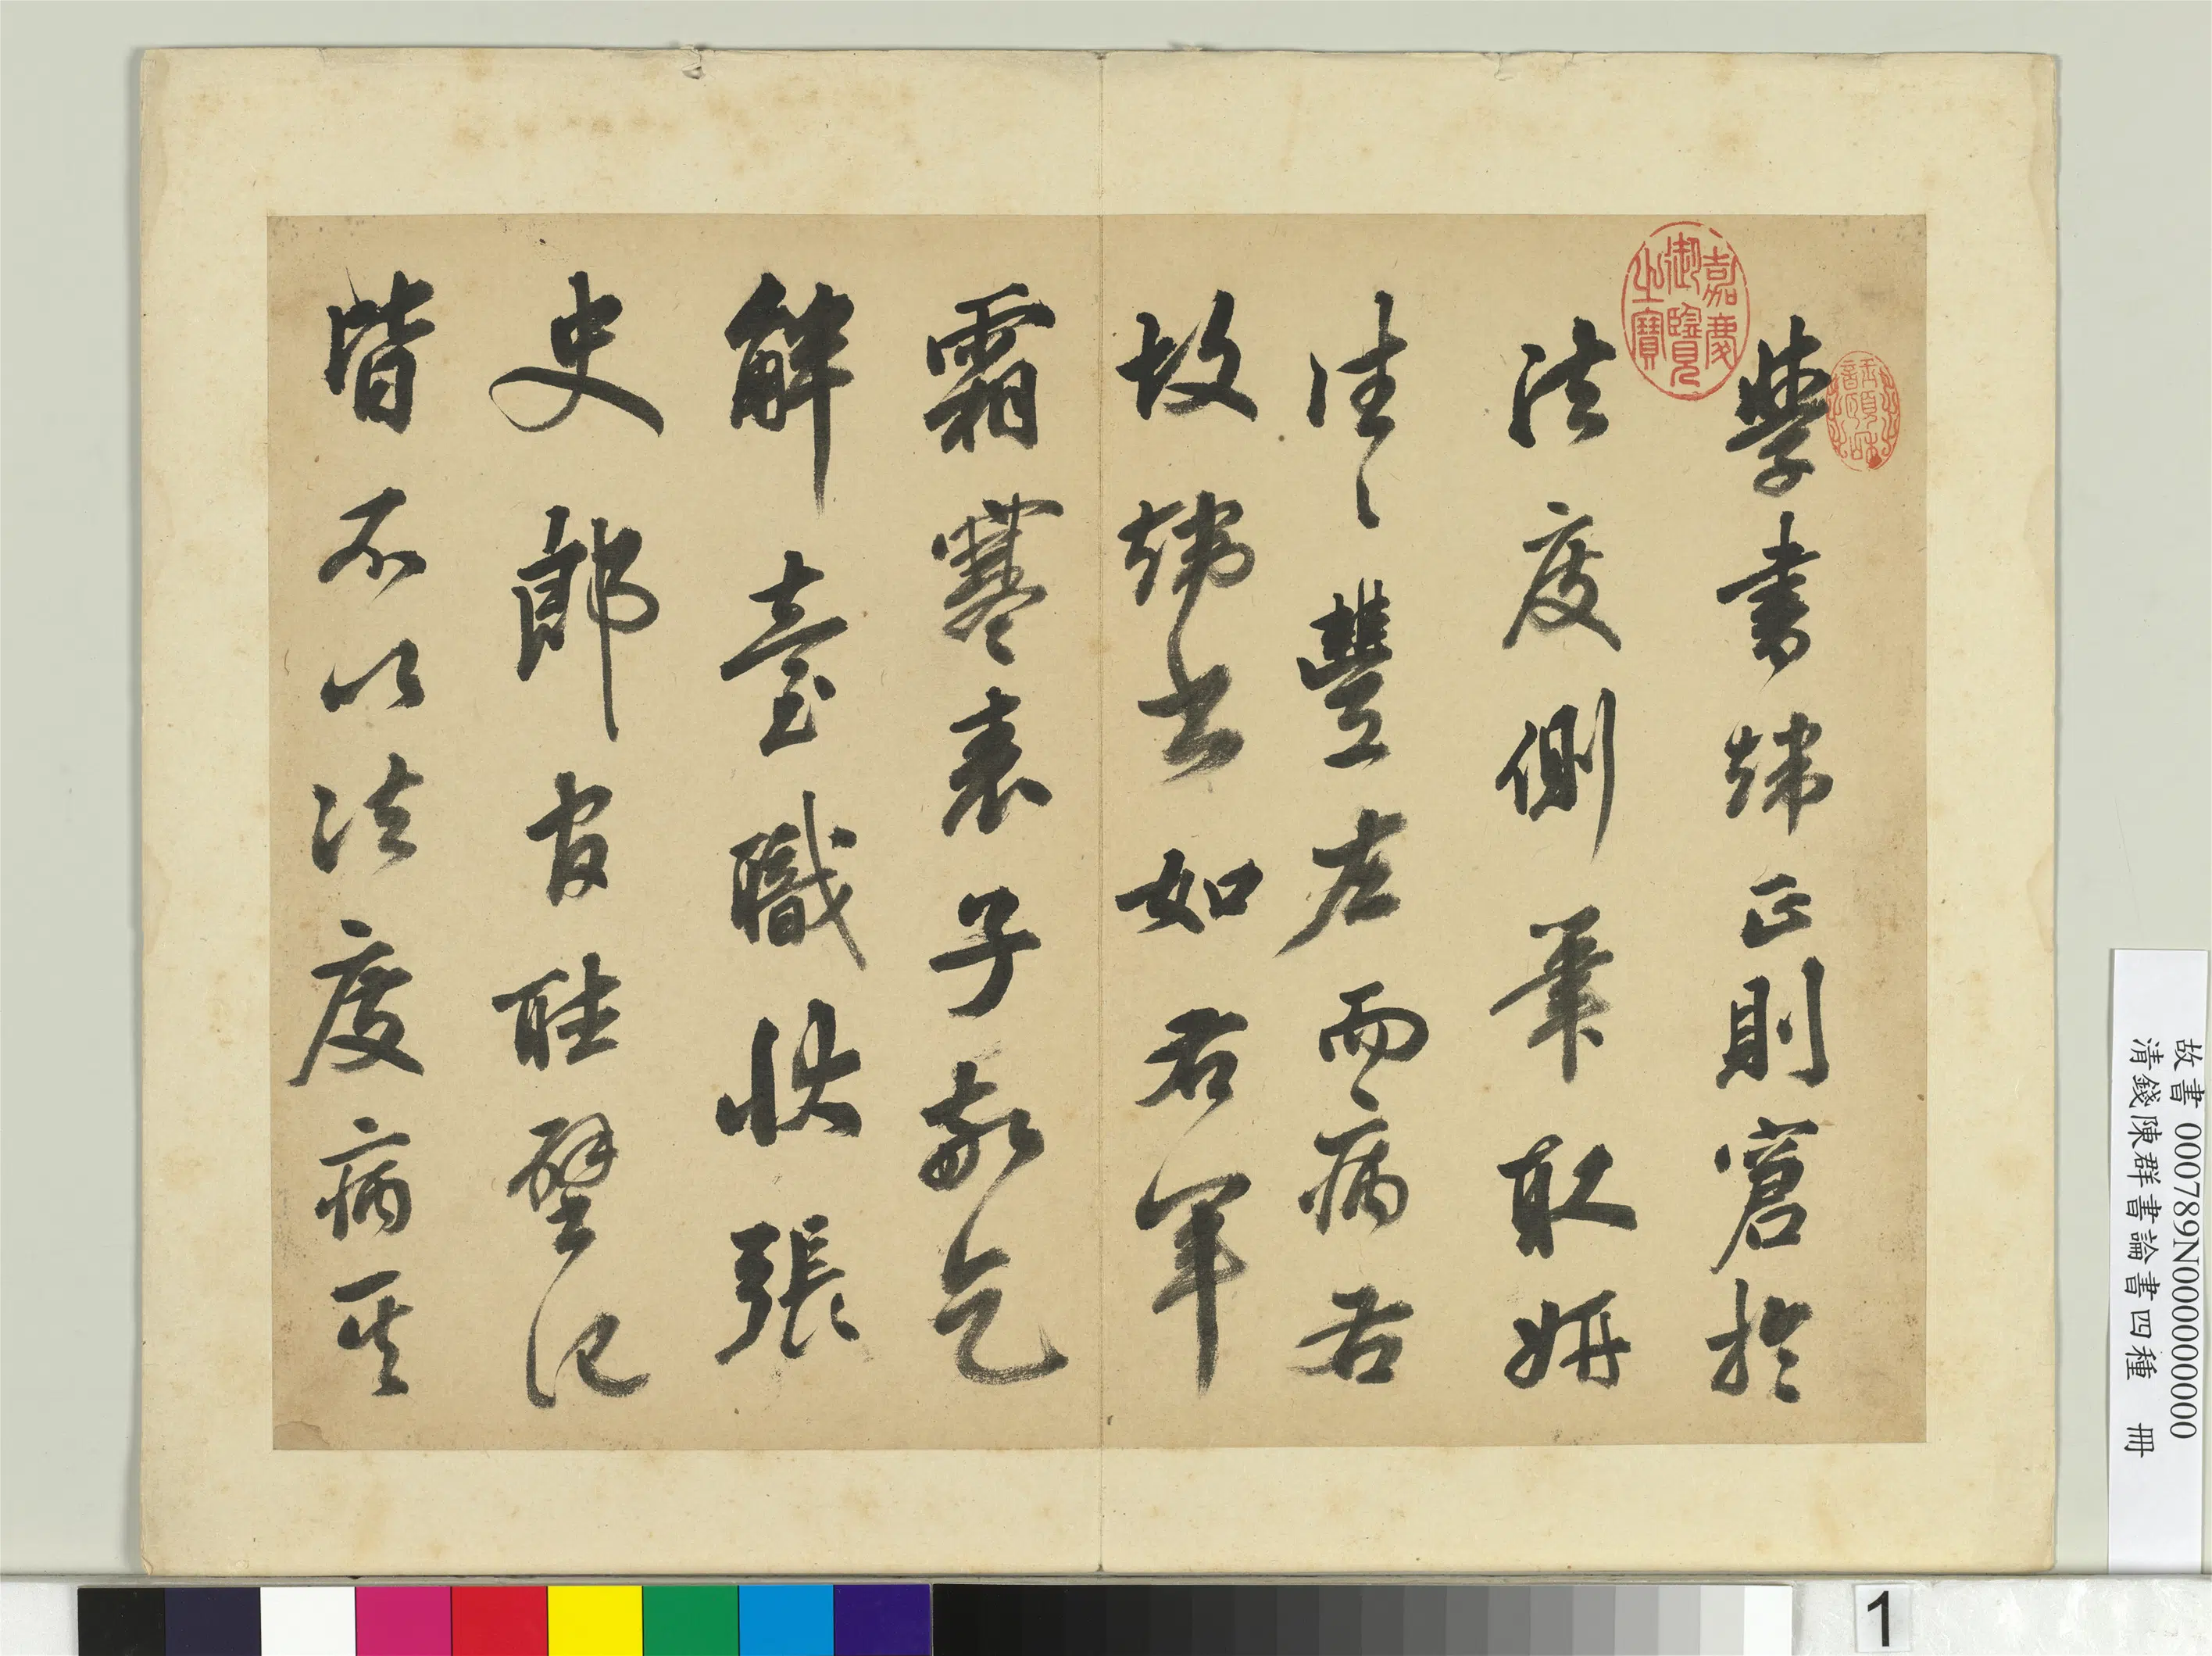 學書端正則窘於
法度側筆取妍
往〻豐左而病右
故端書如右軍
霜寒表子敬乞
解臺職狀張
史郎官聽壁記
皆不以法度病其
嘉慶御覽之寶
故書 000789N000000000
清錢陳群書論書四種 冊
1